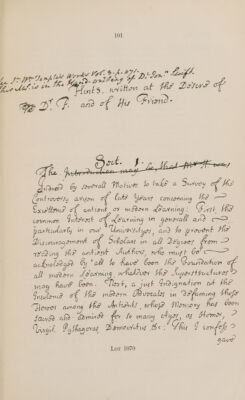 101
See Sr. Wm. Temple's Works Vol. 3. p. 471.
This MS. is in the Hand-writing of Dr. Jon. Swift.
Hints, written at the Desire of
Dr. F. and of His Friend.
Sect. 1.
The Introduction may be, that Mr. H. was
induced by severall Motives to take a Survey of the
Controversy arisen of late Years concerning the
Excellence of antient or modern Learning: First, the
common Interest of Learning in generall and
particularly in our Universityes, and to prevent the
Discouragement of Scholars in all Degrees from
reading the antient Authors, who must be
acknoledged by all to have been the Foundation of
all modern Learning whatever the Superstructures
may have been. Next, a just Indignation at the
Insolence of the modern Advocates in defaming those
Heroes among the Antients, whose Memory has been
sacred and admired for so many Ages, as Homer,
Virgil, Pythagoras, Democritus &c: This I confess
gave
Lot 1070